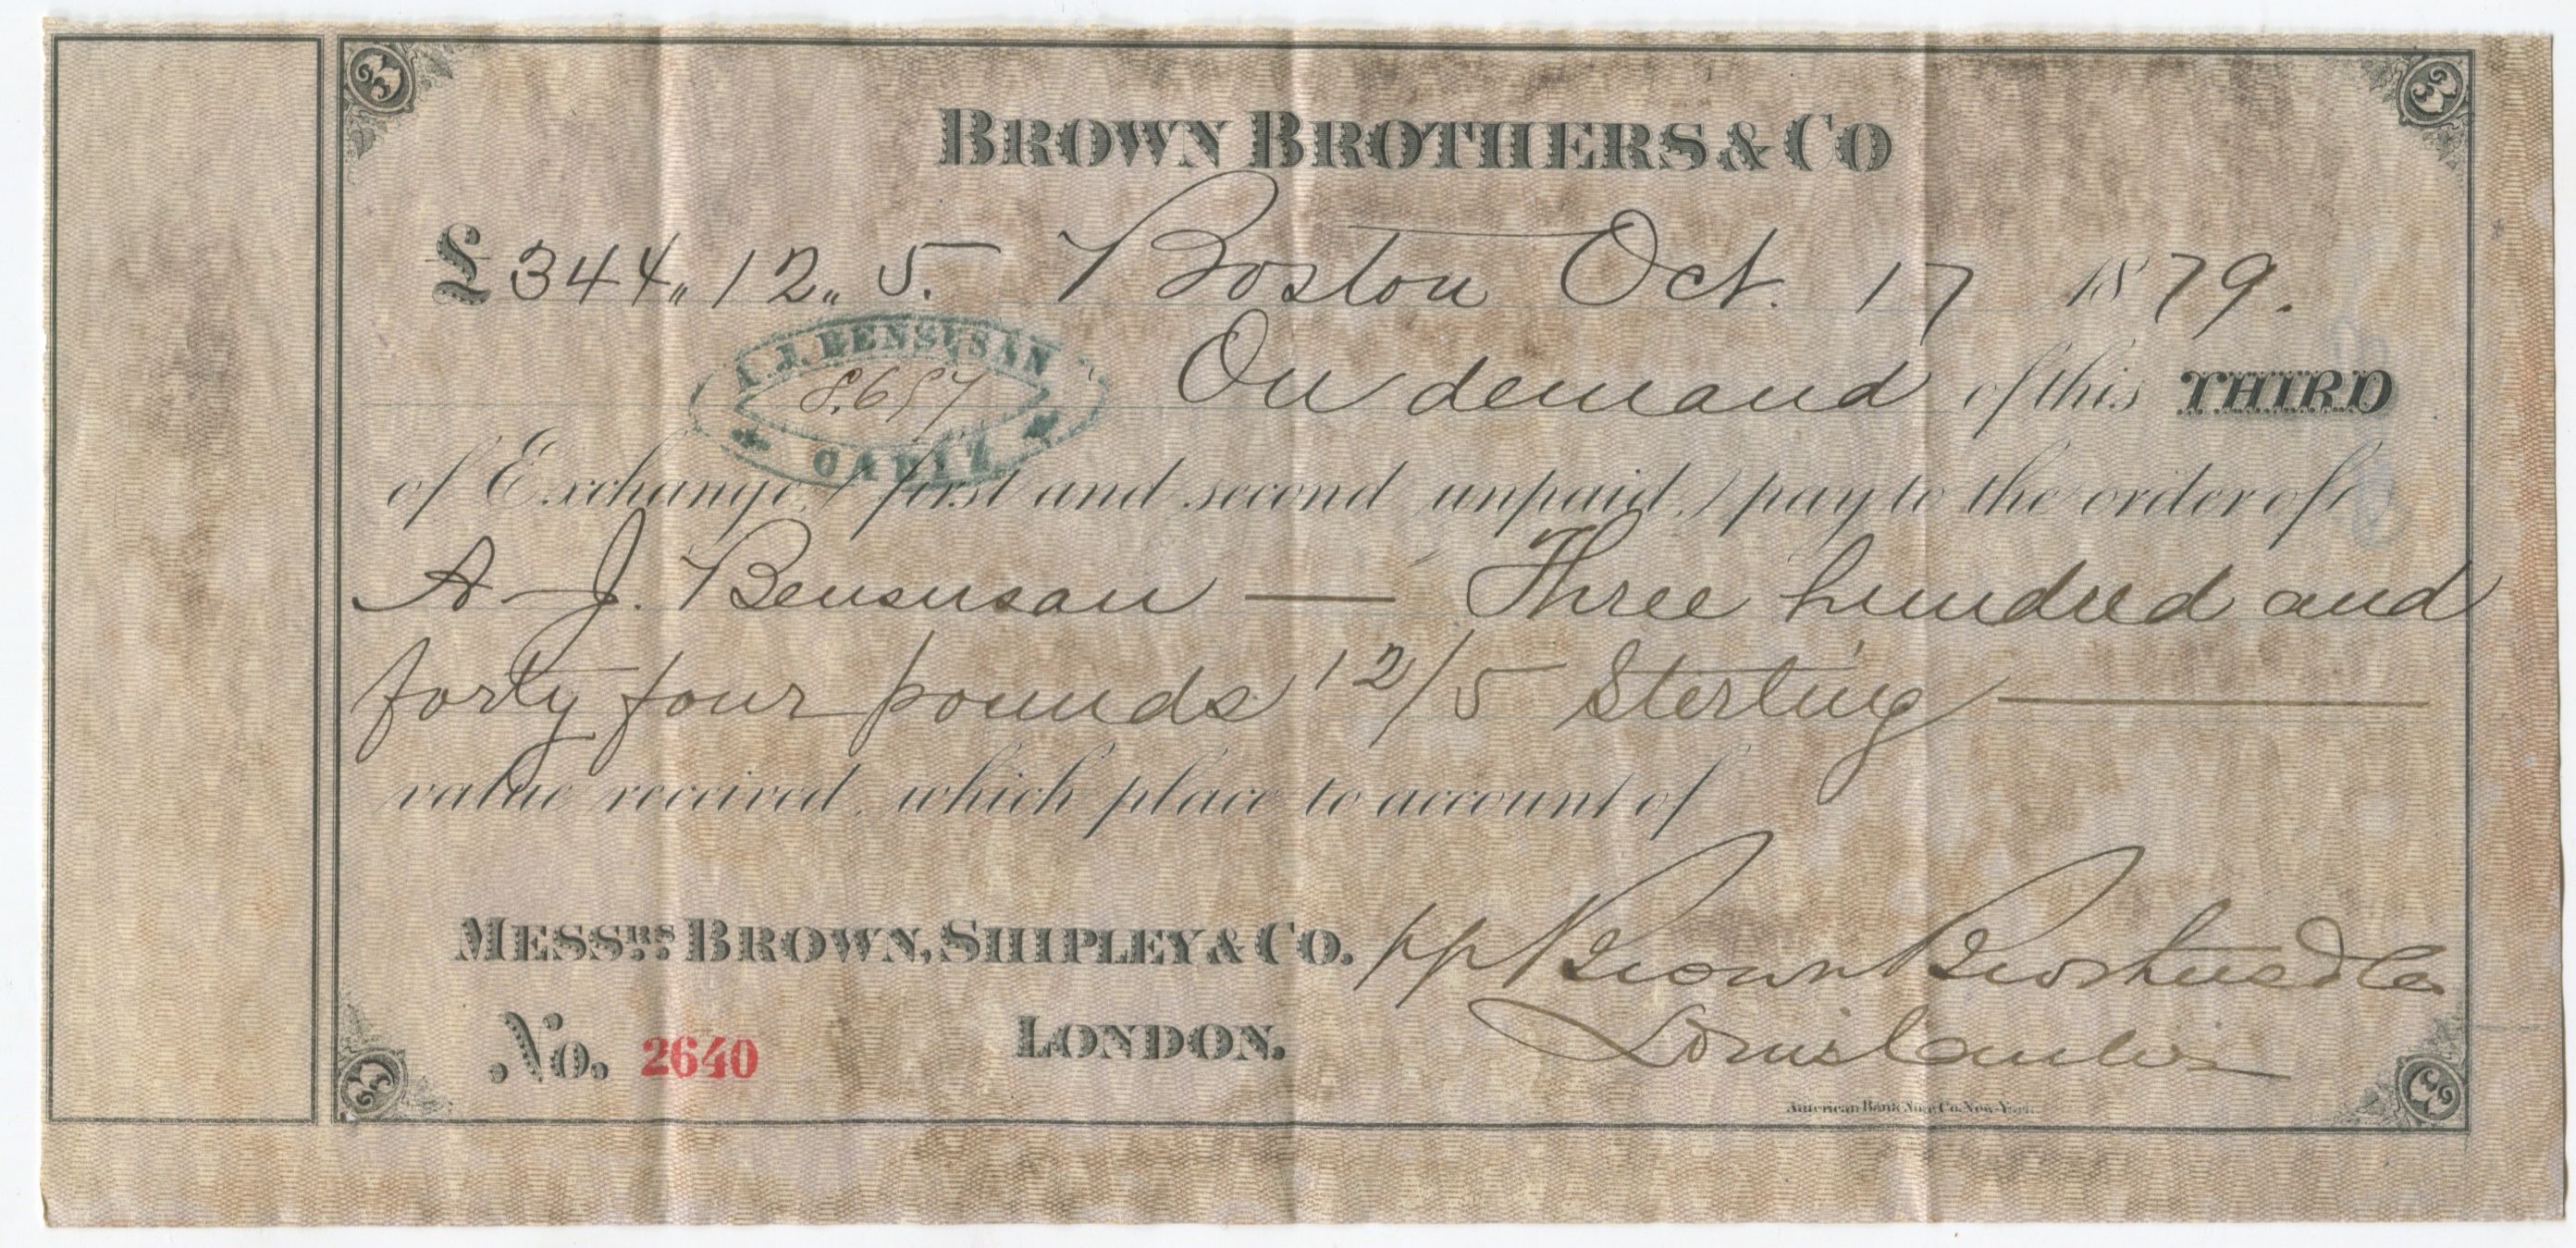 3 3
BROWN BROTHERS & CO
£ 344,, 12,, 5. Boston Oct. 17 1879.
A. J. BENSUSAN
8.657
CADIZ
On demand of this THIRD
of Exchange, (first and second unpaid,) pay to the order of
A. J. Bensusan — Three hundred and
forty four pounds 12/5 Sterling —
value received, which place to account of
MESSRS BROWN, SHIPLEY & CO. pp Brown Brothers & Co
LONDON. Louis
No. 2640
American Bank Note Co. New-York.
3 3